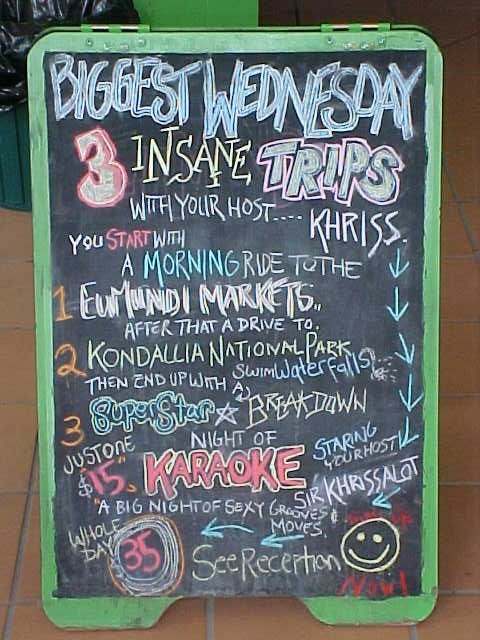 BIGGEST WEDNESDAY
3 INSANE TRIPS
WITH YOUR HOST....
KHRISS.
YOU START WITH
A MORNING RIDE TO THE
1 EUMUNDI MARKETS..
AFTER THAT A DRIVE TO.
2 KONDALLIA NATIONAL PARK
SWIM WATERFALLS!
THEN END UP WITH A
3 SUPERSTAR BREAKDOWN
NIGHT OF
JUST ONE
$15 KARAOKE
STARING
YOUR HOST
SIR KHRISSALOT
"A BIG NIGHT OF SEXY GROOVES &
MOVES.
WHOLE
DAY
35
See Reception
Now!